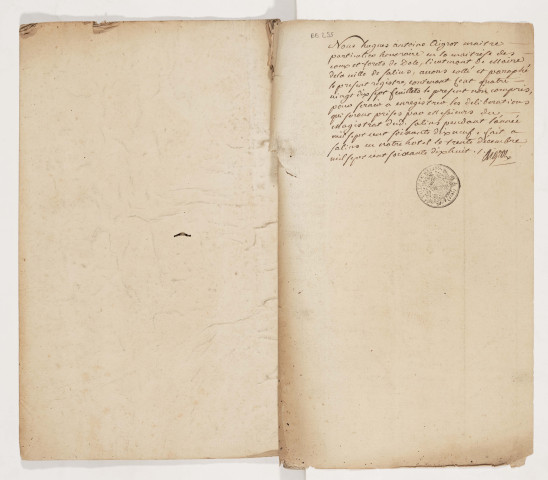 BB 135
Nous hugues antoine Cligrot maitre
particulier honoraire en la maitrise des
eaux et forets de Dole, lieutenant de maire
de la ville de Salins, avons cotté et paraphé
le present registre, contenant cent quatre
vingt dix sept feuillets le present non compris,
pour servir a enregistrer les deliberations
qui seront prises par messieurs du
Magistrat dud. Salins pendant l'année
mil sept cent soixante dix neuf. fait a
Salins en notre hotel le trente decembre
mil sept cent soixante dix huit.